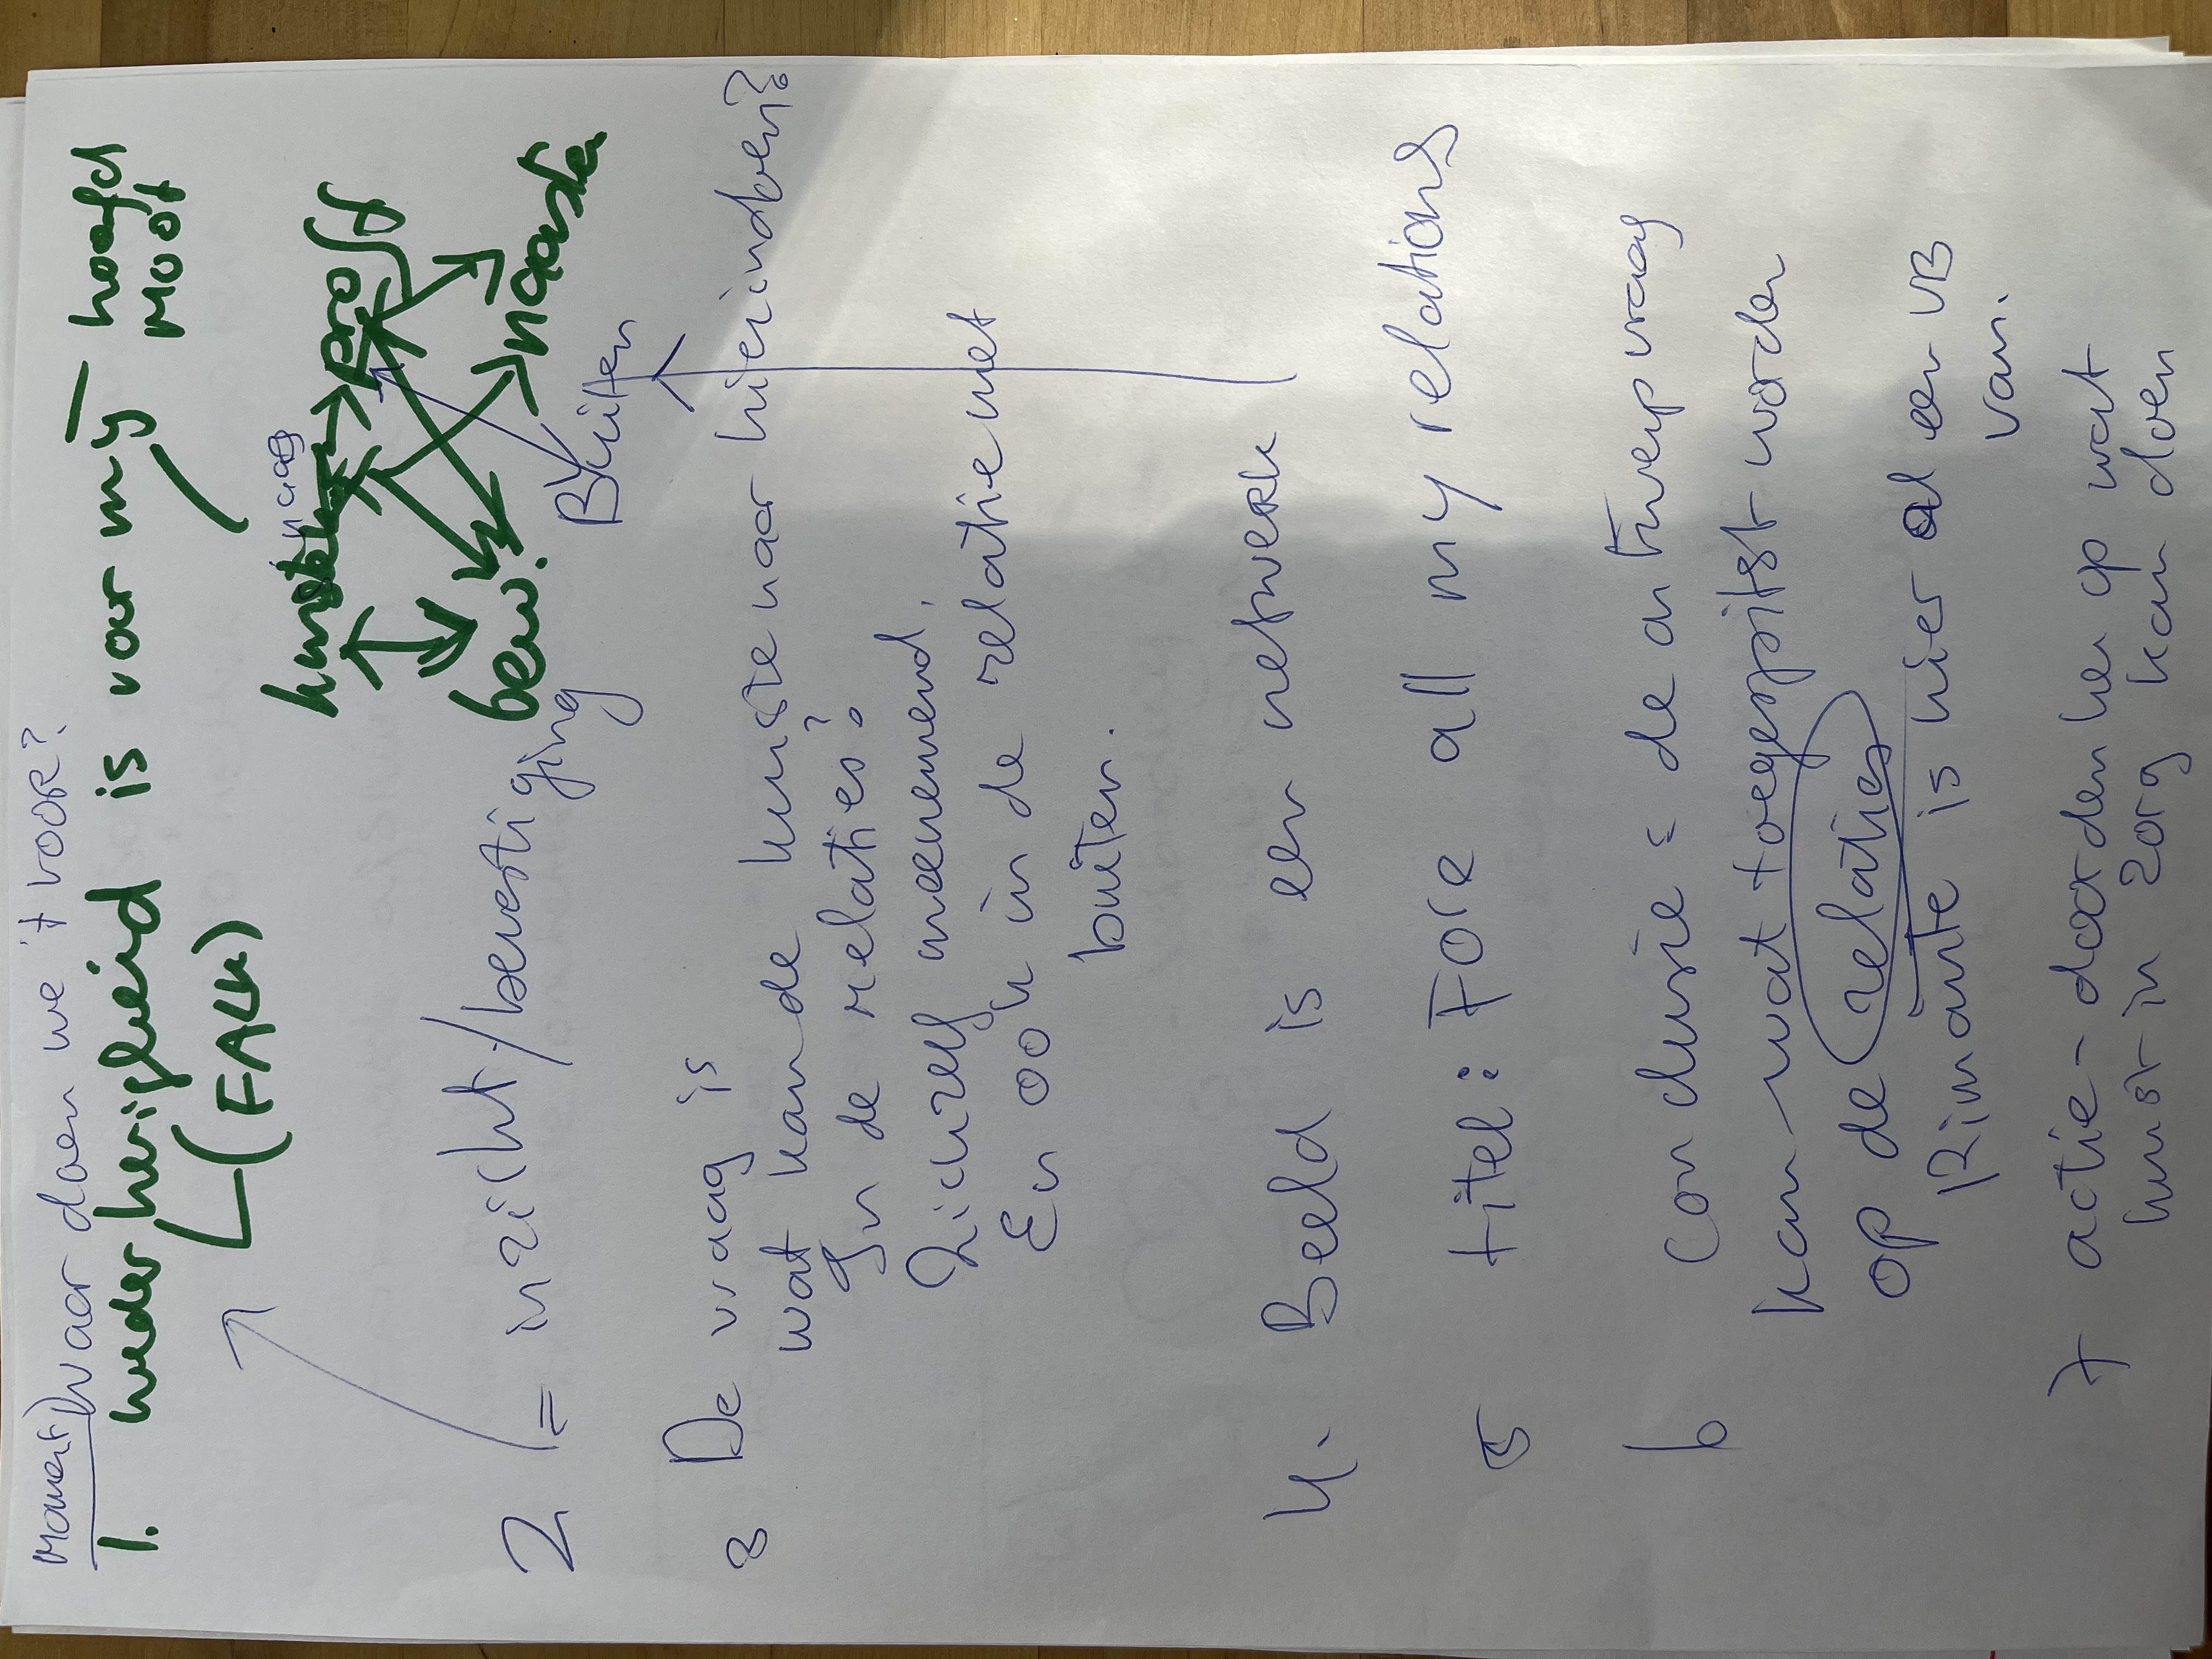 Moment) Waar doen we 't voor?
1. wederkerigheid is voor mij hoofd
moot
(FALK)
naag
proff
bew.
naasten
2 = inzicht/bevestiging
Buiten
3 De vraag is
wat kan de kunstenaar hierin doen?
In de relaties?
Zichzelf meenemend.
En ook in de relatie met
buiten.
4. Beeld is een netwerk
5 titel: Fore all my relations
6 conclusie: de ontwerpvraag
kan wat toegespitst worden
op de relaties
Rimante is hier al een VB
van.
7 actie - doordenken op wat
kunst in zorg kan doen